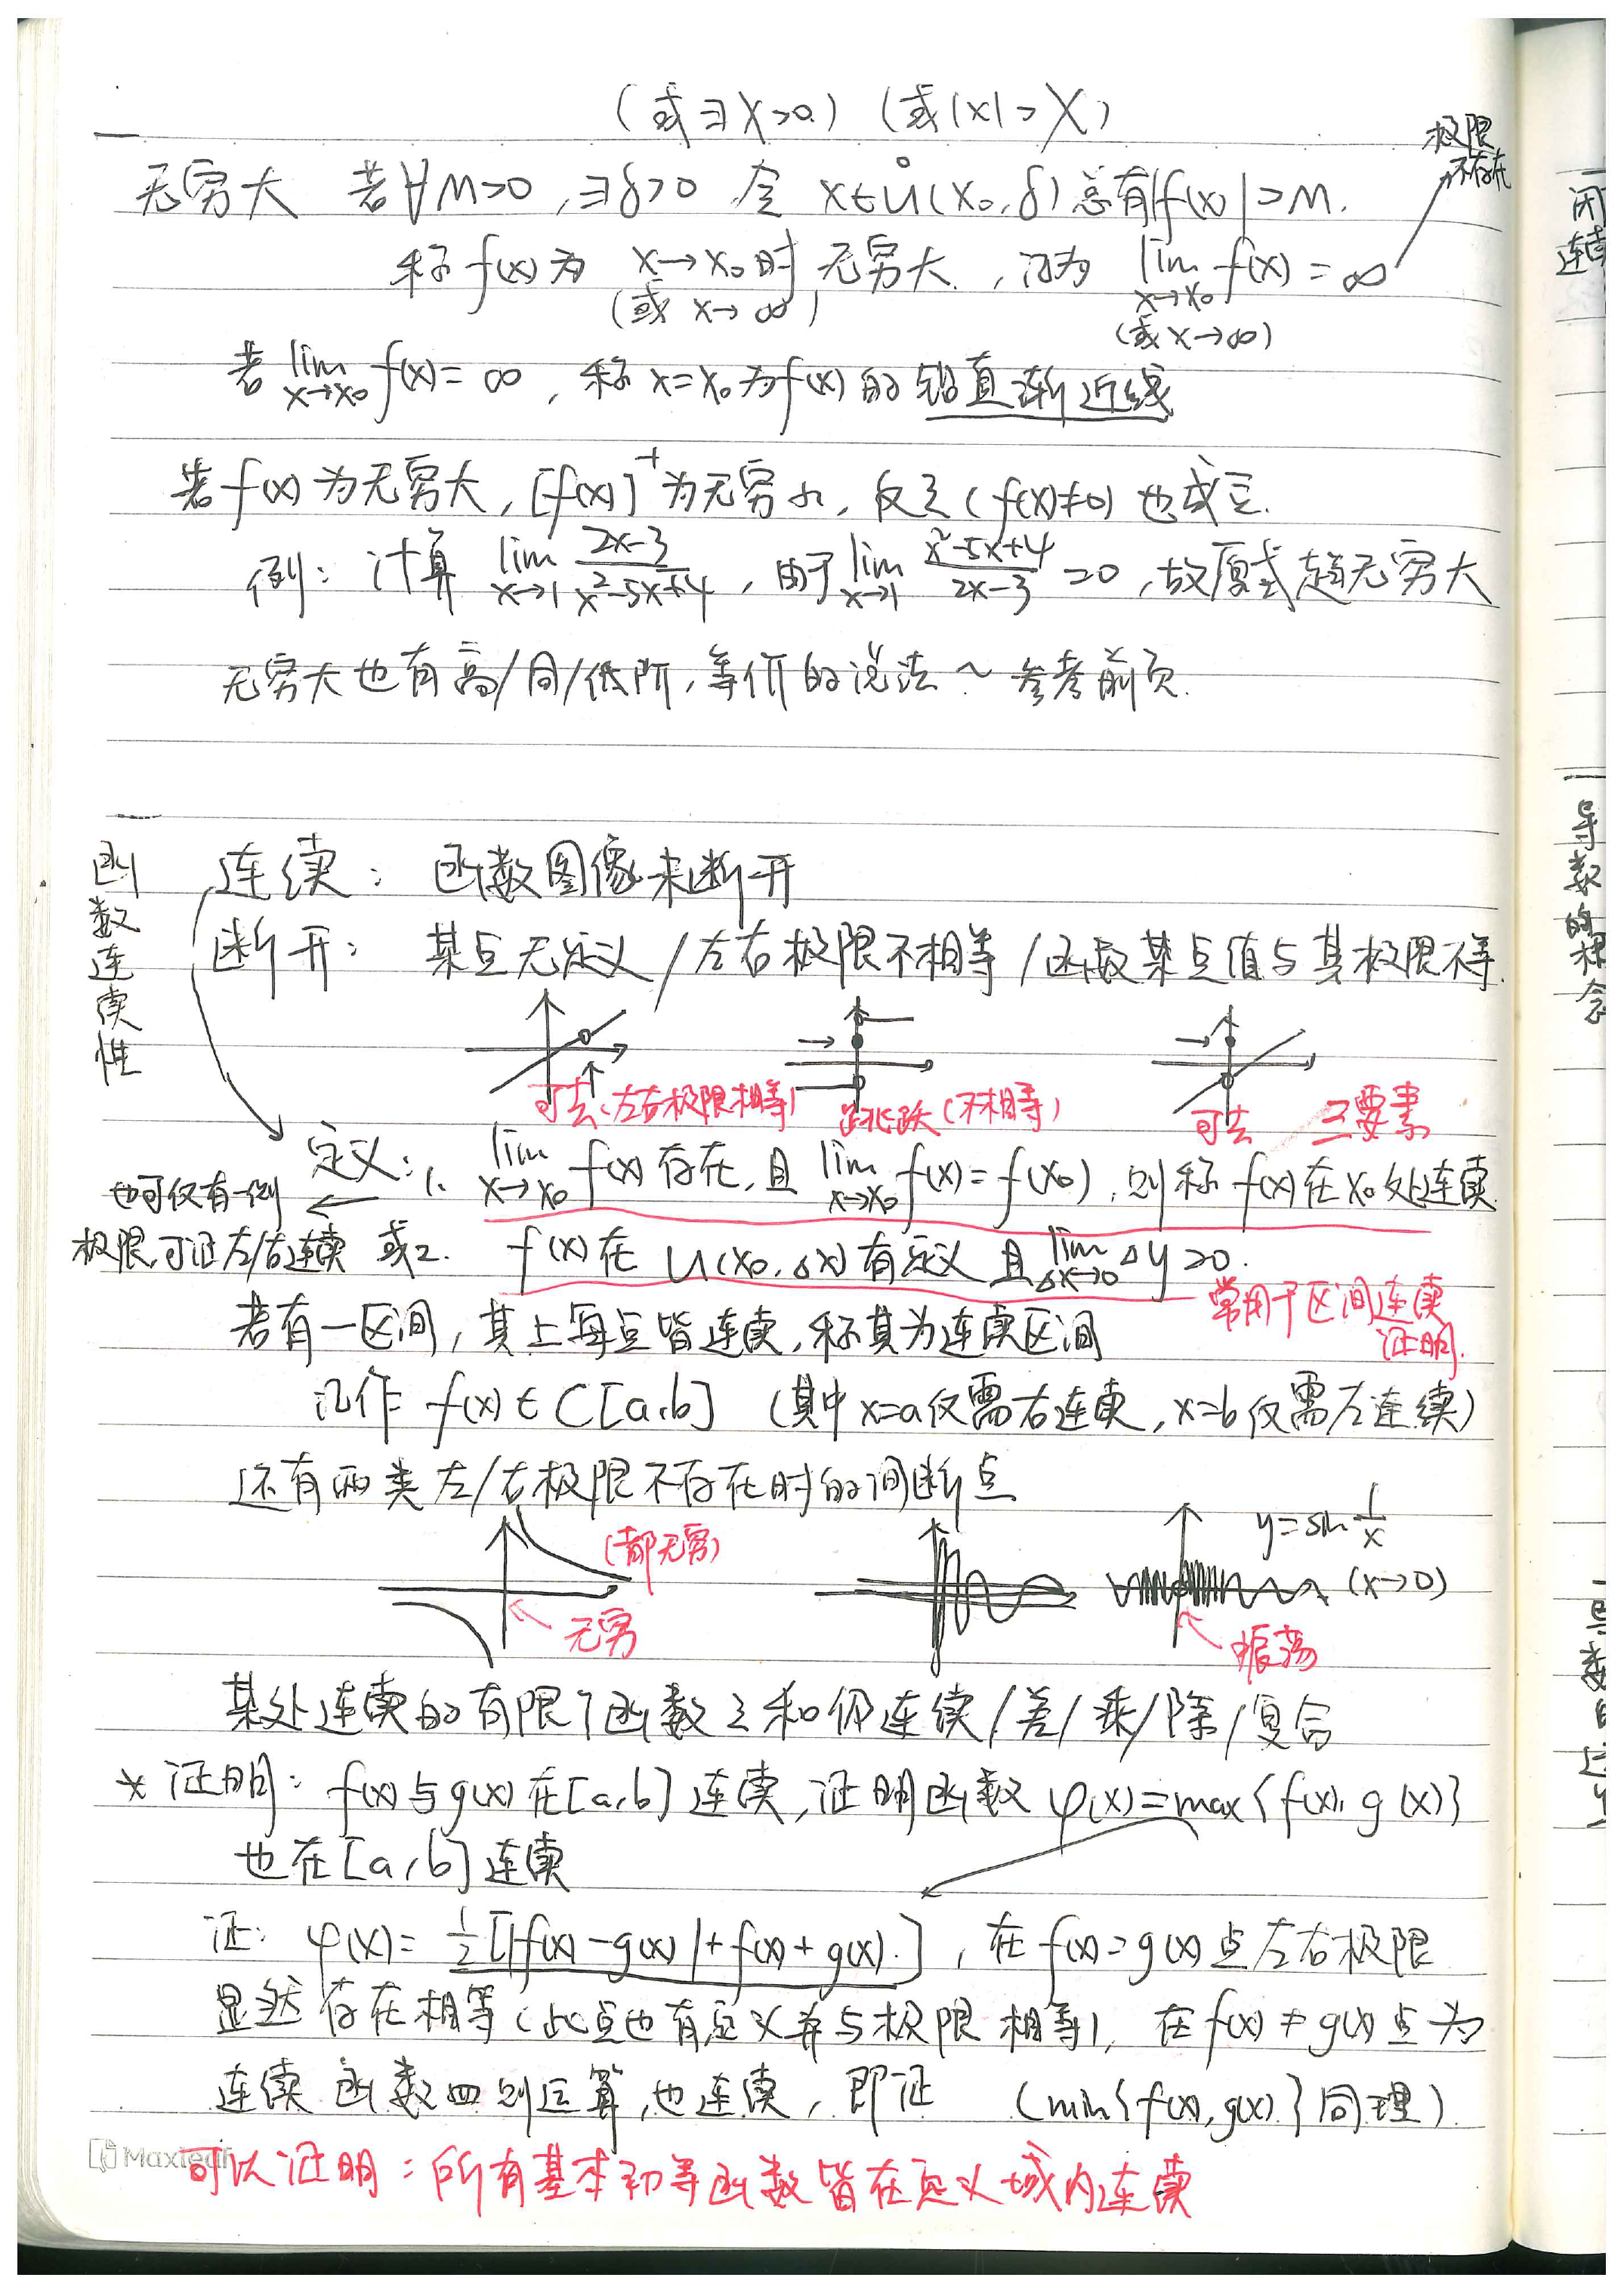 (或∃X>0) (或|x|>X)
极限
不存在
无穷大 若∀M>0,∃δ>0 令 x∈Ů(x₀,δ)总有|f(x)|>M.
称f(x)为 x→x₀时 无穷大,记为 lim x→x₀ f(x)=∞
(或 x→∞) (或x→∞)
若 lim x→x₀ f(x)=∞,称x=x₀为f(x)的铅直渐近线
若f(x)为无穷大,[f(x)]⁻¹为无穷小,反之(f(x)≠0)也成立.
例:计算 lim x→1 (2x-3)/(x²-5x+4),由于 lim x→1 (x²-5x+4)/(2x-3)=0,故原式趋无穷大
无穷大也有高/同/低阶,等价的说法~参考前页.
函数连续性
连续:函数图像未断开
断开:某点无定义/左右极限不相等/函数某点值与其极限不等.
可去(左右极限相等) 跳跃(不相等) 可去 三要素
定义:1. lim x→x₀ f(x)存在,且 lim x→x₀ f(x)=f(x₀),则称f(x)在x₀处连续.
也可仅有一侧
极限,可证左/右连续 或2. f(x)在U(x₀,Δx)有定义且 lim Δx→0 Δy=0.
常用于区间连续
证明.
若有一区间,其上每点皆连续,称其为连续区间
记作 f(x)∈C[a,b] (其中x=a仅需右连续,x=b仅需左连续)
还有两类左/右极限不存在时的间断点
(都无穷) 无穷
y=sin 1/x
(x→0)
振荡
某处连续的有限个函数之和仍连续/差/乘/除/复合
* 证明:f(x)与g(x)在[a,b]连续,证明函数φ(x)=max{f(x),g(x)}
也在[a,b]连续
证:φ(x)=½[|f(x)-g(x)|+f(x)+g(x)],在f(x)=g(x)点左右极限
显然存在相等(此点也有定义并与极限相等),在f(x)≠g(x)点为
连续函数四则运算,也连续,即证 (min{f(x),g(x)}同理)
Maxleaf
可以证明:所有基本初等函数皆在定义域内连续
闭
连续
导数的概念